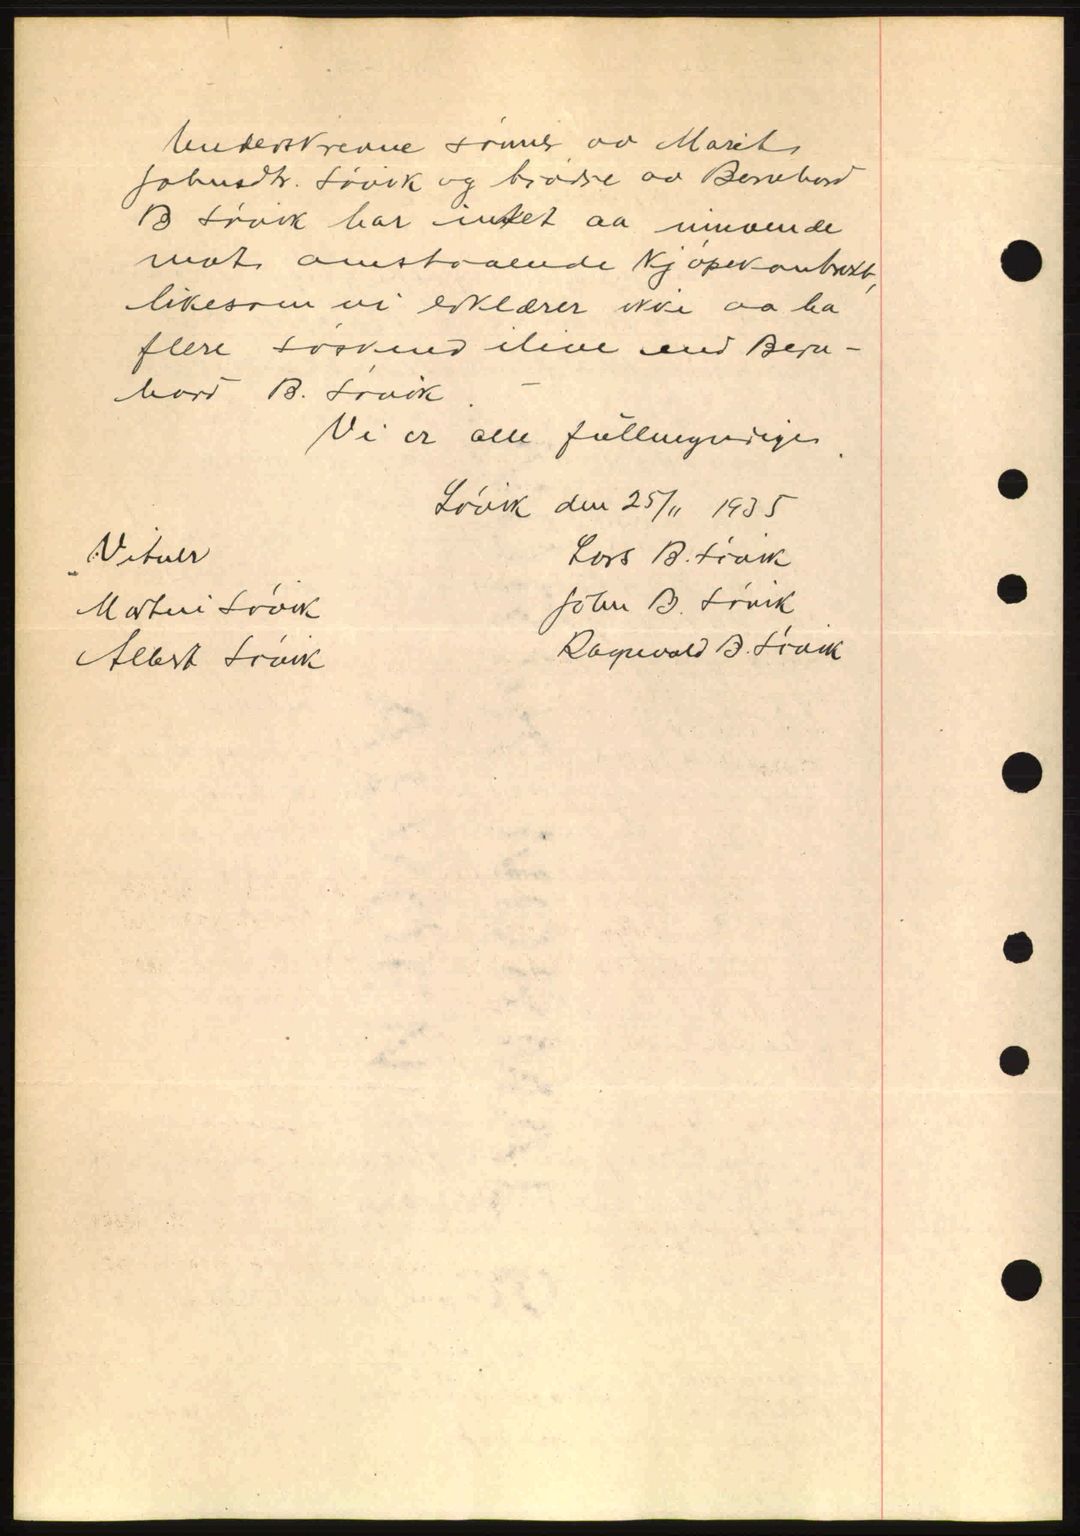 Underskrevne sønner av Marit
Johnsdtr. Søvik og brødre av Bernhard
B Søvik har intet aa innvende
mot omstaaende kjøpekontrakt,
likesom vi erklærer ikke aa ha
flere søskend ilive end Bern-
hard B. Søvik. -
Vi er alle fullmyndige.
Søvik den 25/11 1935
Vitner Lars B. Søvik
Martin Søvik John B. Søvik
Albert Søvik Ragnvald B. Søvik